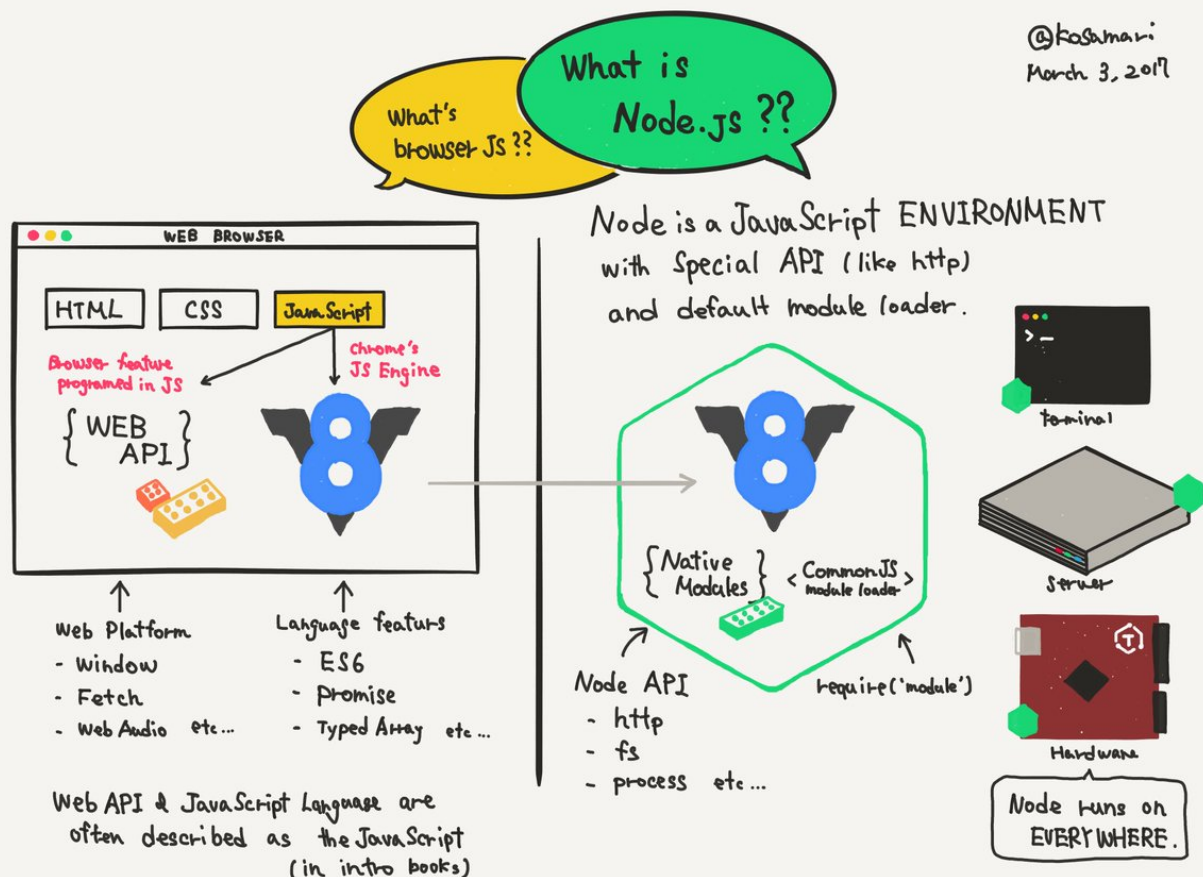 @kosamari
March 3, 2017
What's
browser Js ??
What is
Node.js ??
WEB BROWSER
HTML
CSS
JavaScript
Browser feature
programed in JS
Chrome's
JS Engine
{WEB
API}
8
Web Platform
- Window
- Fetch
- Web Audio etc...
Language featurs
- ES6
- Promise
- Typed Array etc...
Web API & JavaScript Language are
often described as the JavaScript
(in intro books)
Node is a JavaScript ENVIRONMENT
with special API (like http)
and default module loader.
8
{Native
Modules}
<CommonJS
module loader>
Node API
- http
- fs
- process etc...
require('module')
>_
terminal
server
T
Hardware
Node runs on
EVERYWHERE.